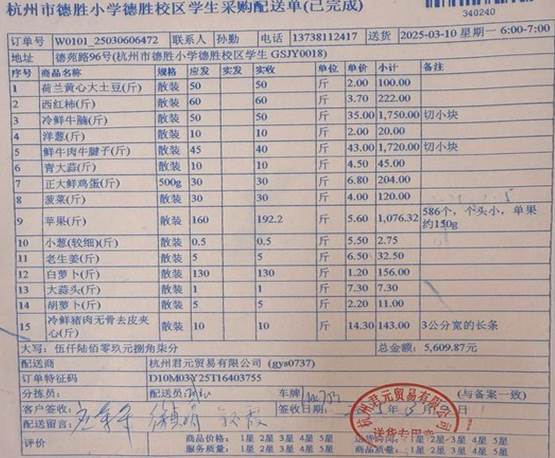 杭州市德胜小学德胜校区学生采购配送单(已完成)
340240
订单号 W0101_25030606472 联系人 孙勤 电话 13738112417 送货 2025-03-10 星期一 6:00-7:00
地址 德苑路96号(杭州市德胜校区学生 GSJY0018)
序号 商品名称 规格 应发 实发 实收 单位 单价 小计 备注
1 荷兰黄心大土豆(斤) 散装 50 50 斤 2.00 100.00
2 西红柿(斤) 散装 60 60 斤 3.70 222.00
3 冷鲜牛腩(斤) 散装 50 50 斤 35.00 1,750.00 切小块
4 洋葱(斤) 散装 10 10 斤 2.00 20.00
5 鲜牛肉牛腱子(斤) 散装 45 40 斤 43.00 1,720.00 切小块
6 青大蒜(斤) 散装 10 10 斤 4.50 45.00
7 正大鲜鸡蛋(斤) 500g 30 30 斤 6.80 204.00
8 菠菜(斤) 散装 30 30 斤 4.00 120.00
9 苹果(斤) 散装 160 192.2 斤 5.60 1,076.32 586个，个头小，单果约150g
10 小葱(较细)(斤) 散装 0.5 0.5 斤 5.50 2.75
11 老生姜(斤) 散装 5 5 斤 6.50 32.50
12 白萝卜(斤) 散装 130 130 斤 1.20 156.00
13 大蒜头(斤) 散装 1 1 斤 7.30 7.30
14 胡萝卜(斤) 散装 5 5 斤 2.20 11.00
15 冷鲜猪肉无骨去皮夹心(斤) 散装 10 10 斤 14.30 143.00 3公分宽的长条
大写：伍仟陆佰零玖元捌角柒分 总金额：5,609.87元
配送商 杭州君元贸易有限公司 (gys0737)
订单特征码 D10M03Y25T16403755
分拣员： 配送员： 车牌 (与备案一致)
客户签收： 签收日期： 年 月 日
配送留言
杭州君元贸易有限公司
送货专用章
评价 商品价格： 1星 2星 3星 4星 5星 送货时间： 1星 2星 3星 4星 5星
服务质量： 1星 2星 3星 4星 5星 1星 2星 3星 4星 5星